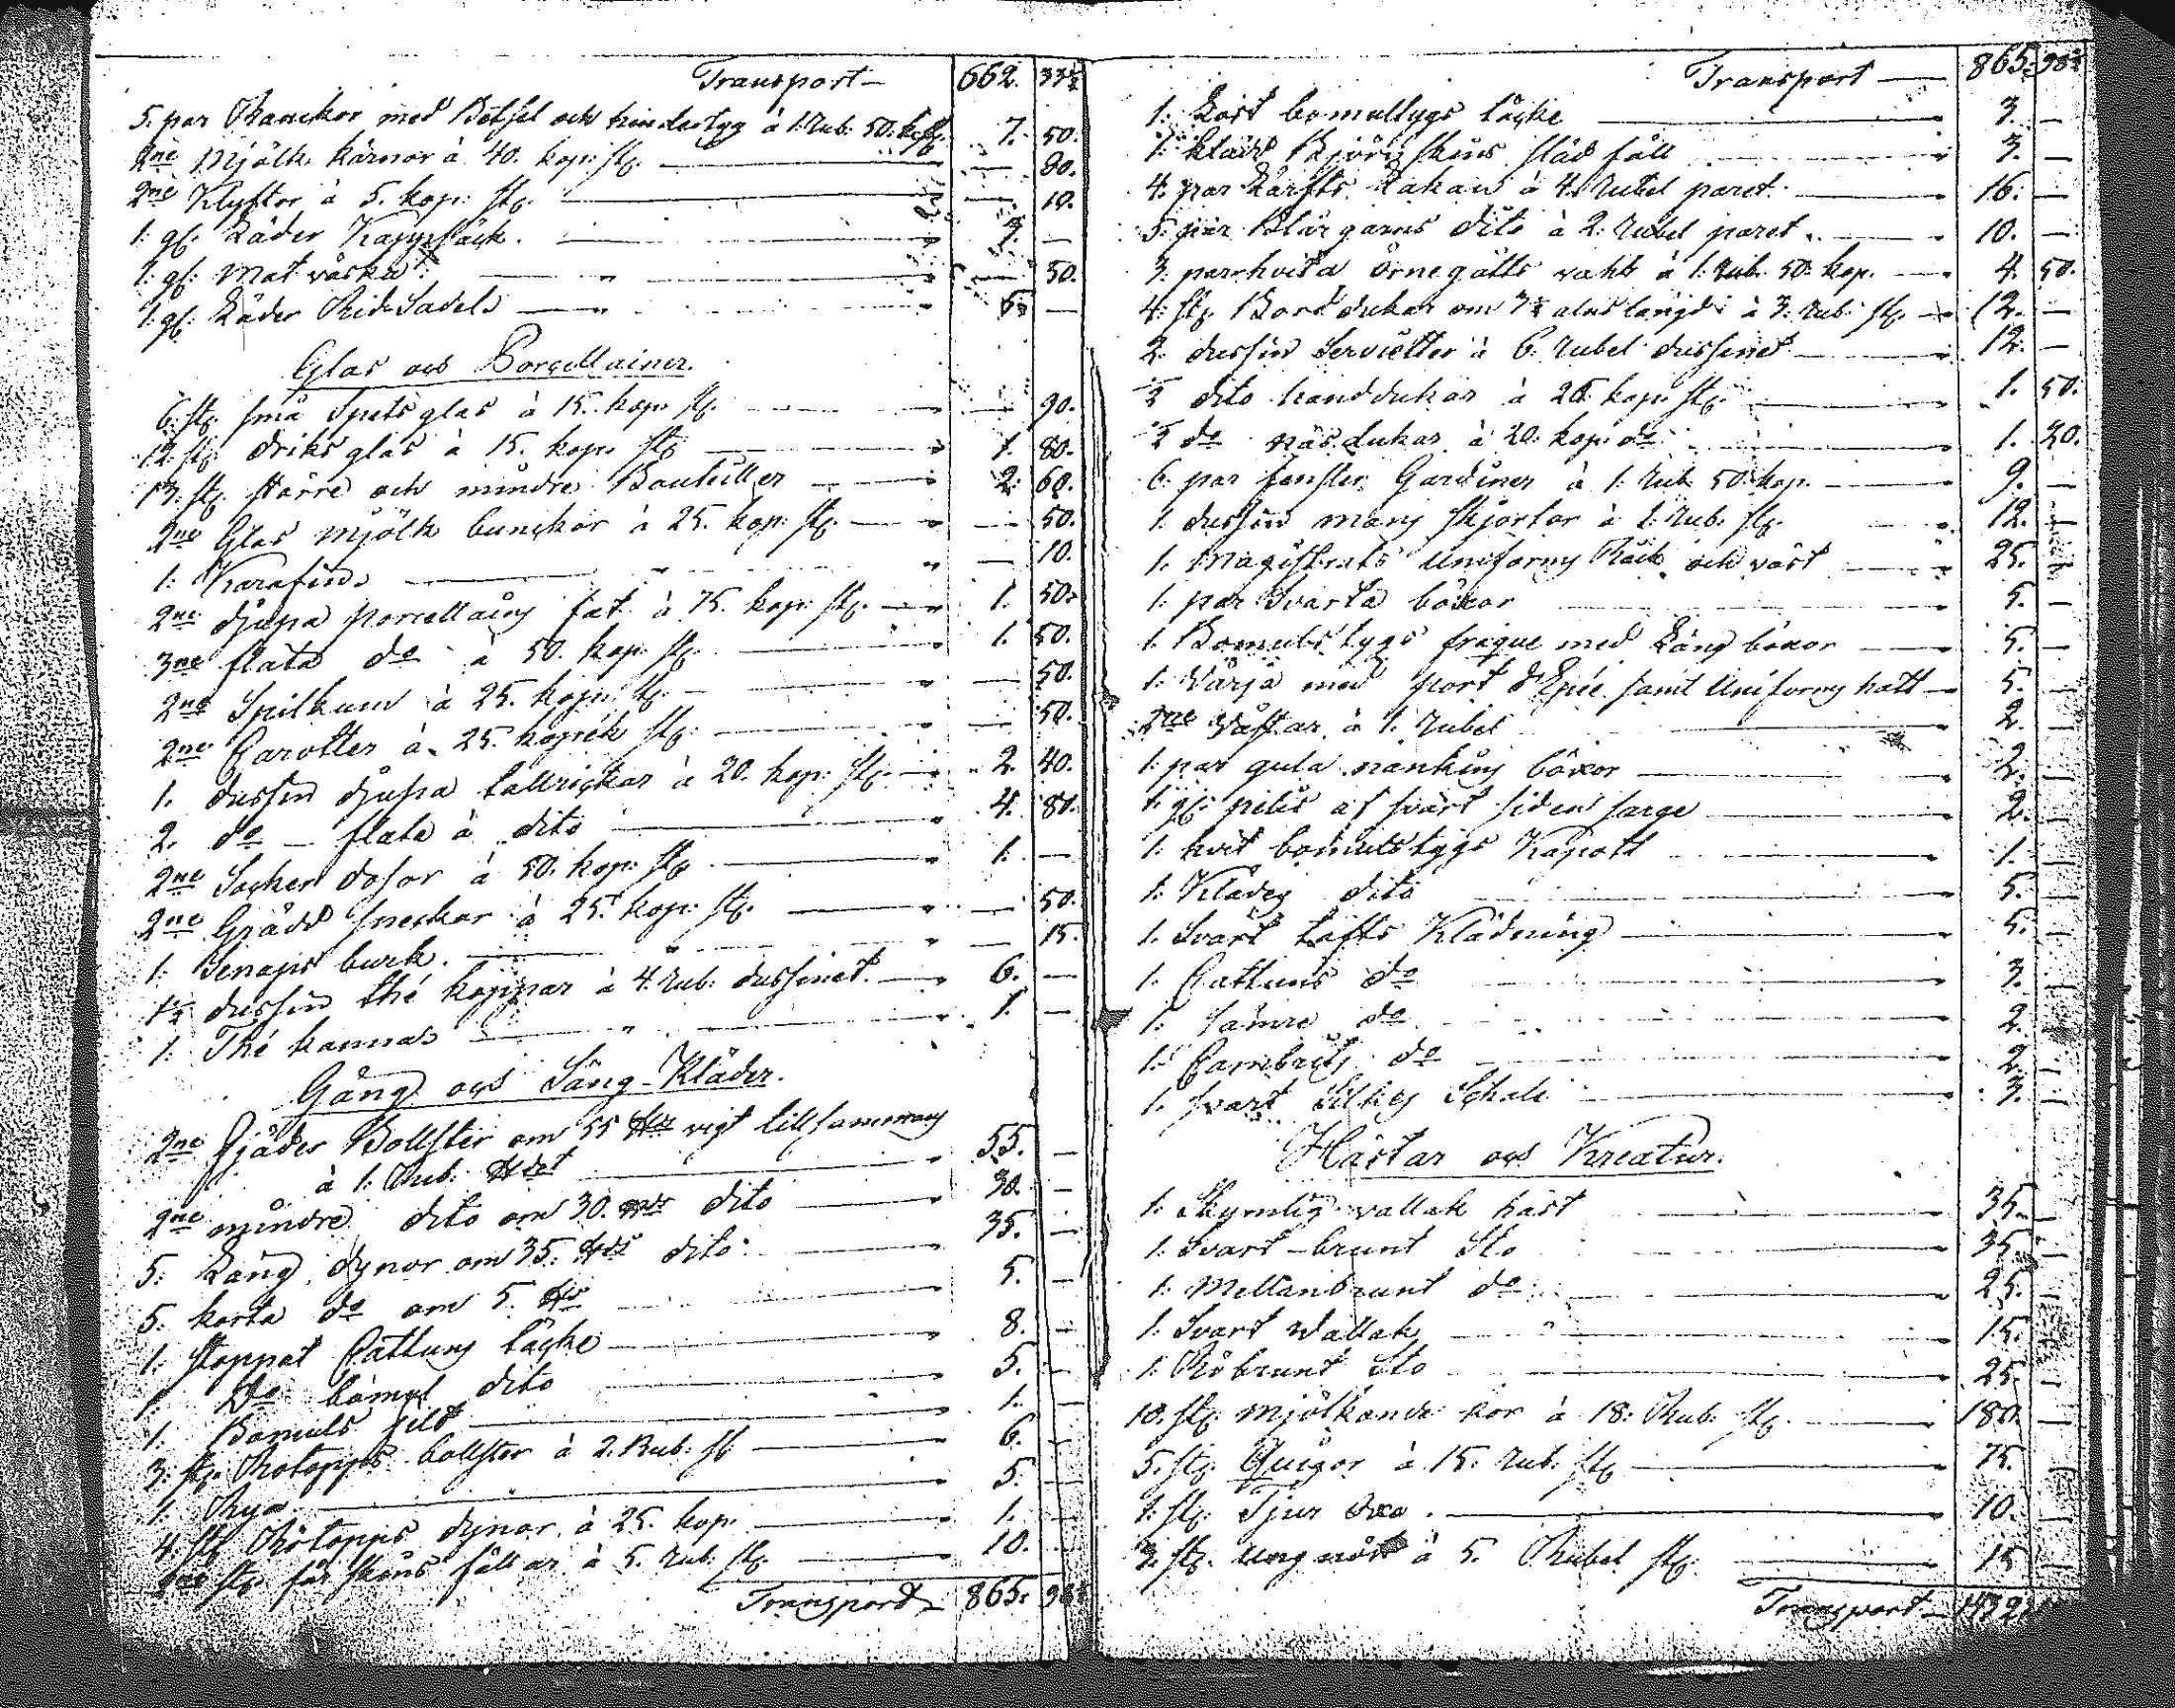 Transport — 662. 33½
5. par Ranckor med Betsel och hindertyg à 1. Rub. 50. kop. 7. 50.
2ne Mjölk kärnor à 40. kop. stÿ. — 80.
2ne Klyftor à 5. kop. stÿ. — 10.
1. gl. Läder Kappsäck. —
1. gl. Mat väska — 50.
1. gl. Läder Rid Sadel
Glas och Porcellainer.
6. st. små Spets glas à 15. kop. st. — 90.
12 st. driks glas à 15. kop. st. 1. 80.
13. st. större och mindre Bouteiller 2. 60.
2ne Glas mjölk bunckar à 25. kop. st. — 50.
1. Karafin — 10.
2ne djupa porcellains fat à 75. kop. st. 1. 50.
3ne flata do à 50. kop. st. 1. 50.
2ne Spilkum à 25. kop. st. — 50.
2ne Carotter à 25. kopek st. — 50.
1. dussin djupa tallrickar à 20. kop. st. 2. 40.
2. do — flata à dito 4. 80.
2ne Socker dosor à 50. kop. st. 1. —
2ne Grädd sneckor à 25. kop. st. — 50.
1. Senaps burk. — 15.
1½ dussin thé koppar à 4. rub. dussinet. 6. —
1. Thé kanna 1. —
Gång och Säng-Kläder.
2ne Fjäder Bollster om 55 vigt tillsammans
à 1. Rub. 55. —
2ne mindre dito om 30. dito 30. —
5. Lång dynor om 35. dito 35. —
5. korta do om 5. 5. —
1. stoppat Cattuns täcke 8. —
1. Do bomul dito 5. —
1. Bomuls filt 1. —
3. st. Rotopps bollster à 2. Rub. st 6. —
1. Rya 5. —
4. st Rötopps dynor à 25. kop. 1. —
2ne st. får skins fällar à 5. rub. st. 10. —
Transport 865. 98½
Transport — 865. 98½
1. kort bomulltygs täcke 3. —
1. klädd Björn skins släd fäll 3. —
4. par Lärfts Lakan à 4. rubel paret. 16. —
5. par Blårgarns dito à 2. rubel paret. 10. —
3. par hvita örnegåtts vahr à 1. rub. 50. kop. 4. 50.
4. st. Bord dukar om alns längd à 3. rub. st. 12. —
2. dussin Servietter à 6. rubel dussinet 12. —
½ dito handdukar à 25. kop. st. 1. 50.
½ do näsdukar à 20. kop. do 1. 20.
6. par fenster Gardiner à 1. rub. 50. kop. 9. —
1. dussin mans skjortor à 1. rub. st. 12. —
1. Magistrats Uniforms Råck och väst 25. —
1. par svarta böxor 5. —
1. Bomuls tygs fraque med Lång böxor 5. —
1. Värja med port d'Epée samt Uniforms hatt 5. —
2ne Västar à 1. rubel 2. —
1. par gula nankins böxor 2. —
1. gl. pelis af svart siden sarge 2. —
1. hvit bomulstygs Kapott 1. —
1. Klädes dito 5. —
1. Svart tafts Klädning 5. —
1. Cattuns do 3. —
1. sämre do 2. —
1. Cambrits do 2. —
1. svart Silkes Schal 3. —
Hästar och Kreatur.
1. Skymlig vallak häst 35. —
1. Svart-brunt Sto 35. —
1. Mellanbrunt do 25. —
1. Svart Wallak 15. —
1. Röbrunt Sto 25. —
10. st. mjölkande kor à 18. Rub. st. 180. —
5. st. Quigor à 15. rub. st. 75. —
1. st. Tjur Oxe. 10. —
3. st. ung nöt à 5. Rubel st. 15 —
Transport